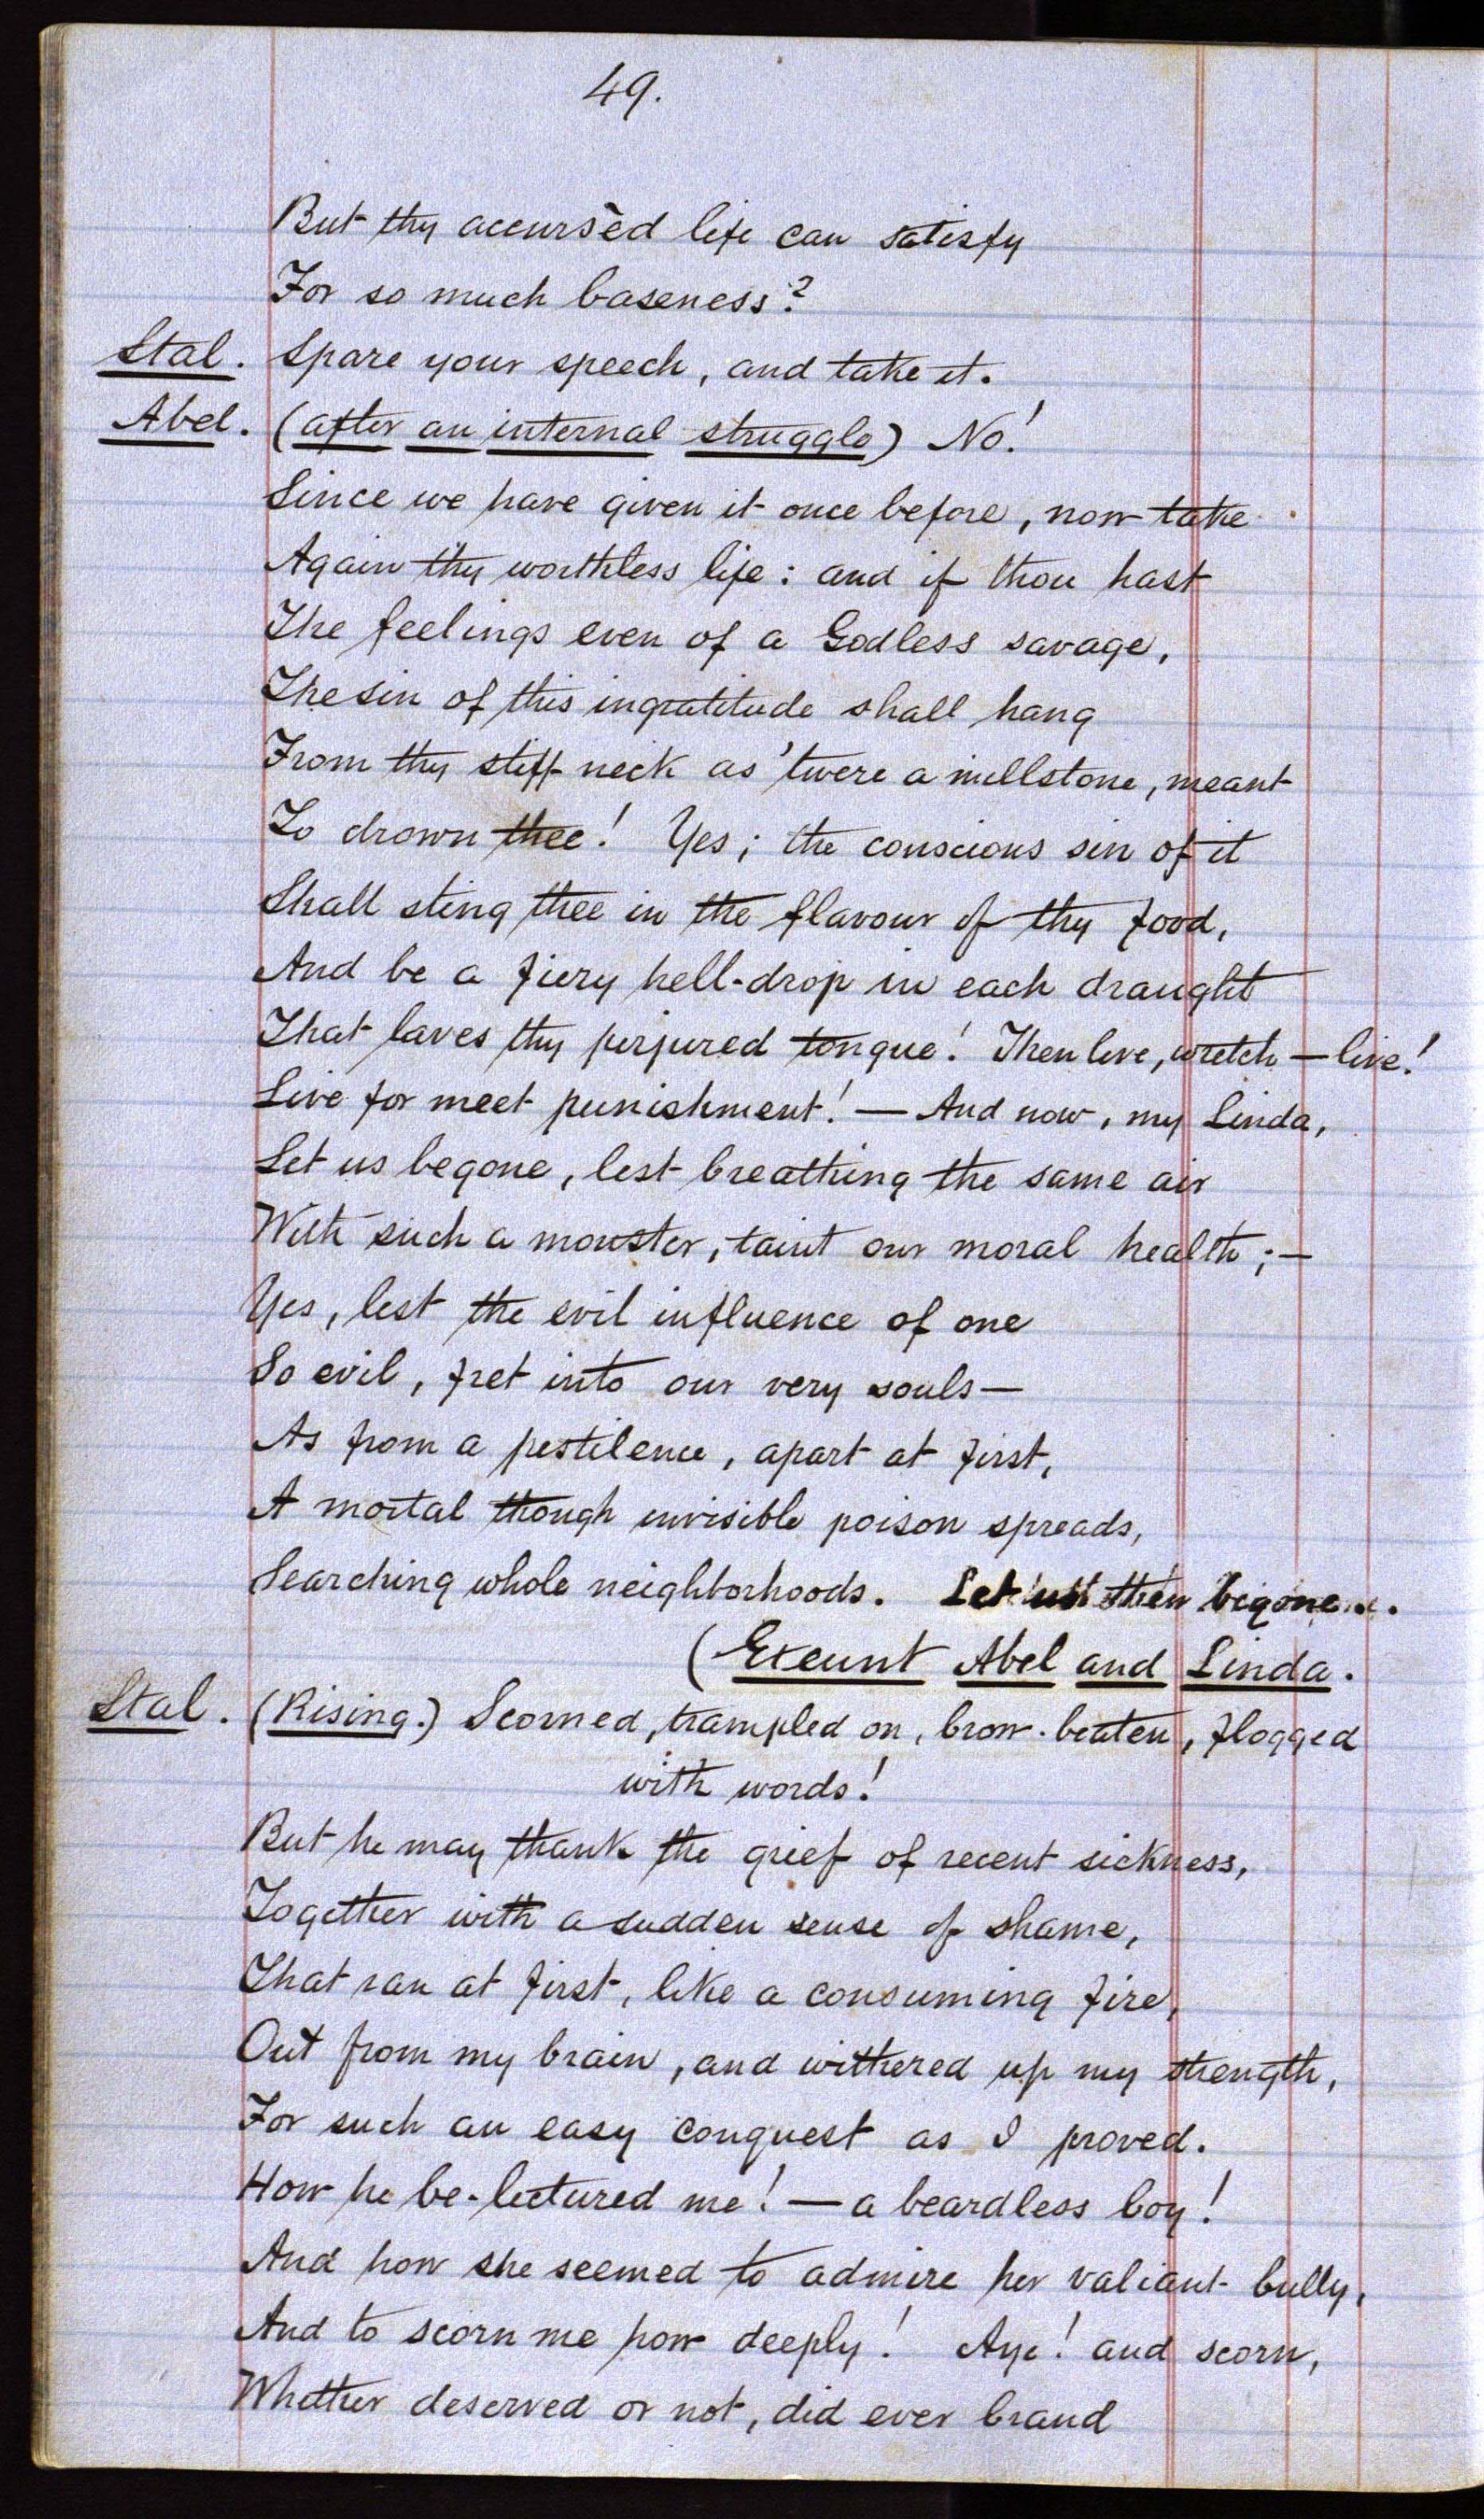 49.
But thy accursèd life can satisfy
For so much baseness?
Stal. Spare your speech, and take it.
Abel. (after an internal struggle) No!
Since we have given it once before, now take
Again thy worthless life: and if thou hast
The feelings even of a Godless savage,
The sin of this ingratitude shall hang
From thy stiff neck as 'twere a millstone, meant
To drown thee! Yes; the conscious sin of it
Shall sting thee in the flavour of thy food,
And be a fiery hell-drop in each draught
That laves thy perjured tongue! Then live, wretch—live!
Live for meet punishment!—And now, my Linda,
Let us begone, lest breathing the same air
With such a monster, taint our moral health;—
Yes, lest the evil influence of one
So evil, fret into our very souls—
As from a pestilence, apart at first,
A mortal though invisible poison spreads,
Searching whole neighborhoods. Let us then begone..
(Exeunt Abel and Linda.
Stal. (Rising.) Scorned, trampled on, brow-beaten, flogged
with words!
But he may thank the grief of recent sickness,
Together with a sudden sense of shame,
That ran at first, like a consuming fire,
Out from my brain, and withered up my strength,
For such an easy conquest as I proved.
How he be-lectured me!—a beardless boy!
And how she seemed to admire her valiant bully,
And to scorn me how deeply! Aye! and scorn,
Whether deserved or not, did ever brand